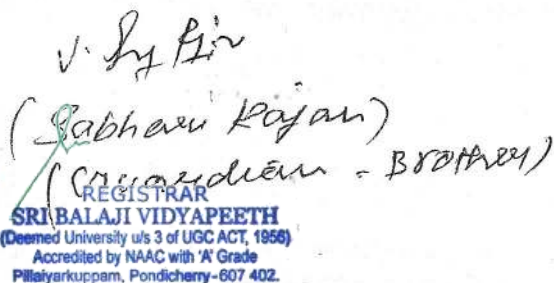 V.
(Sabhari Rajan)
(Guardian - Brother)
REGISTRAR
SRI BALAJI VIDYAPEETH
(Deemed University u/s 3 of UGC ACT, 1956)
Accredited by NAAC with 'A' Grade
Pillaiyarkuppam, Pondicherry-607 402.